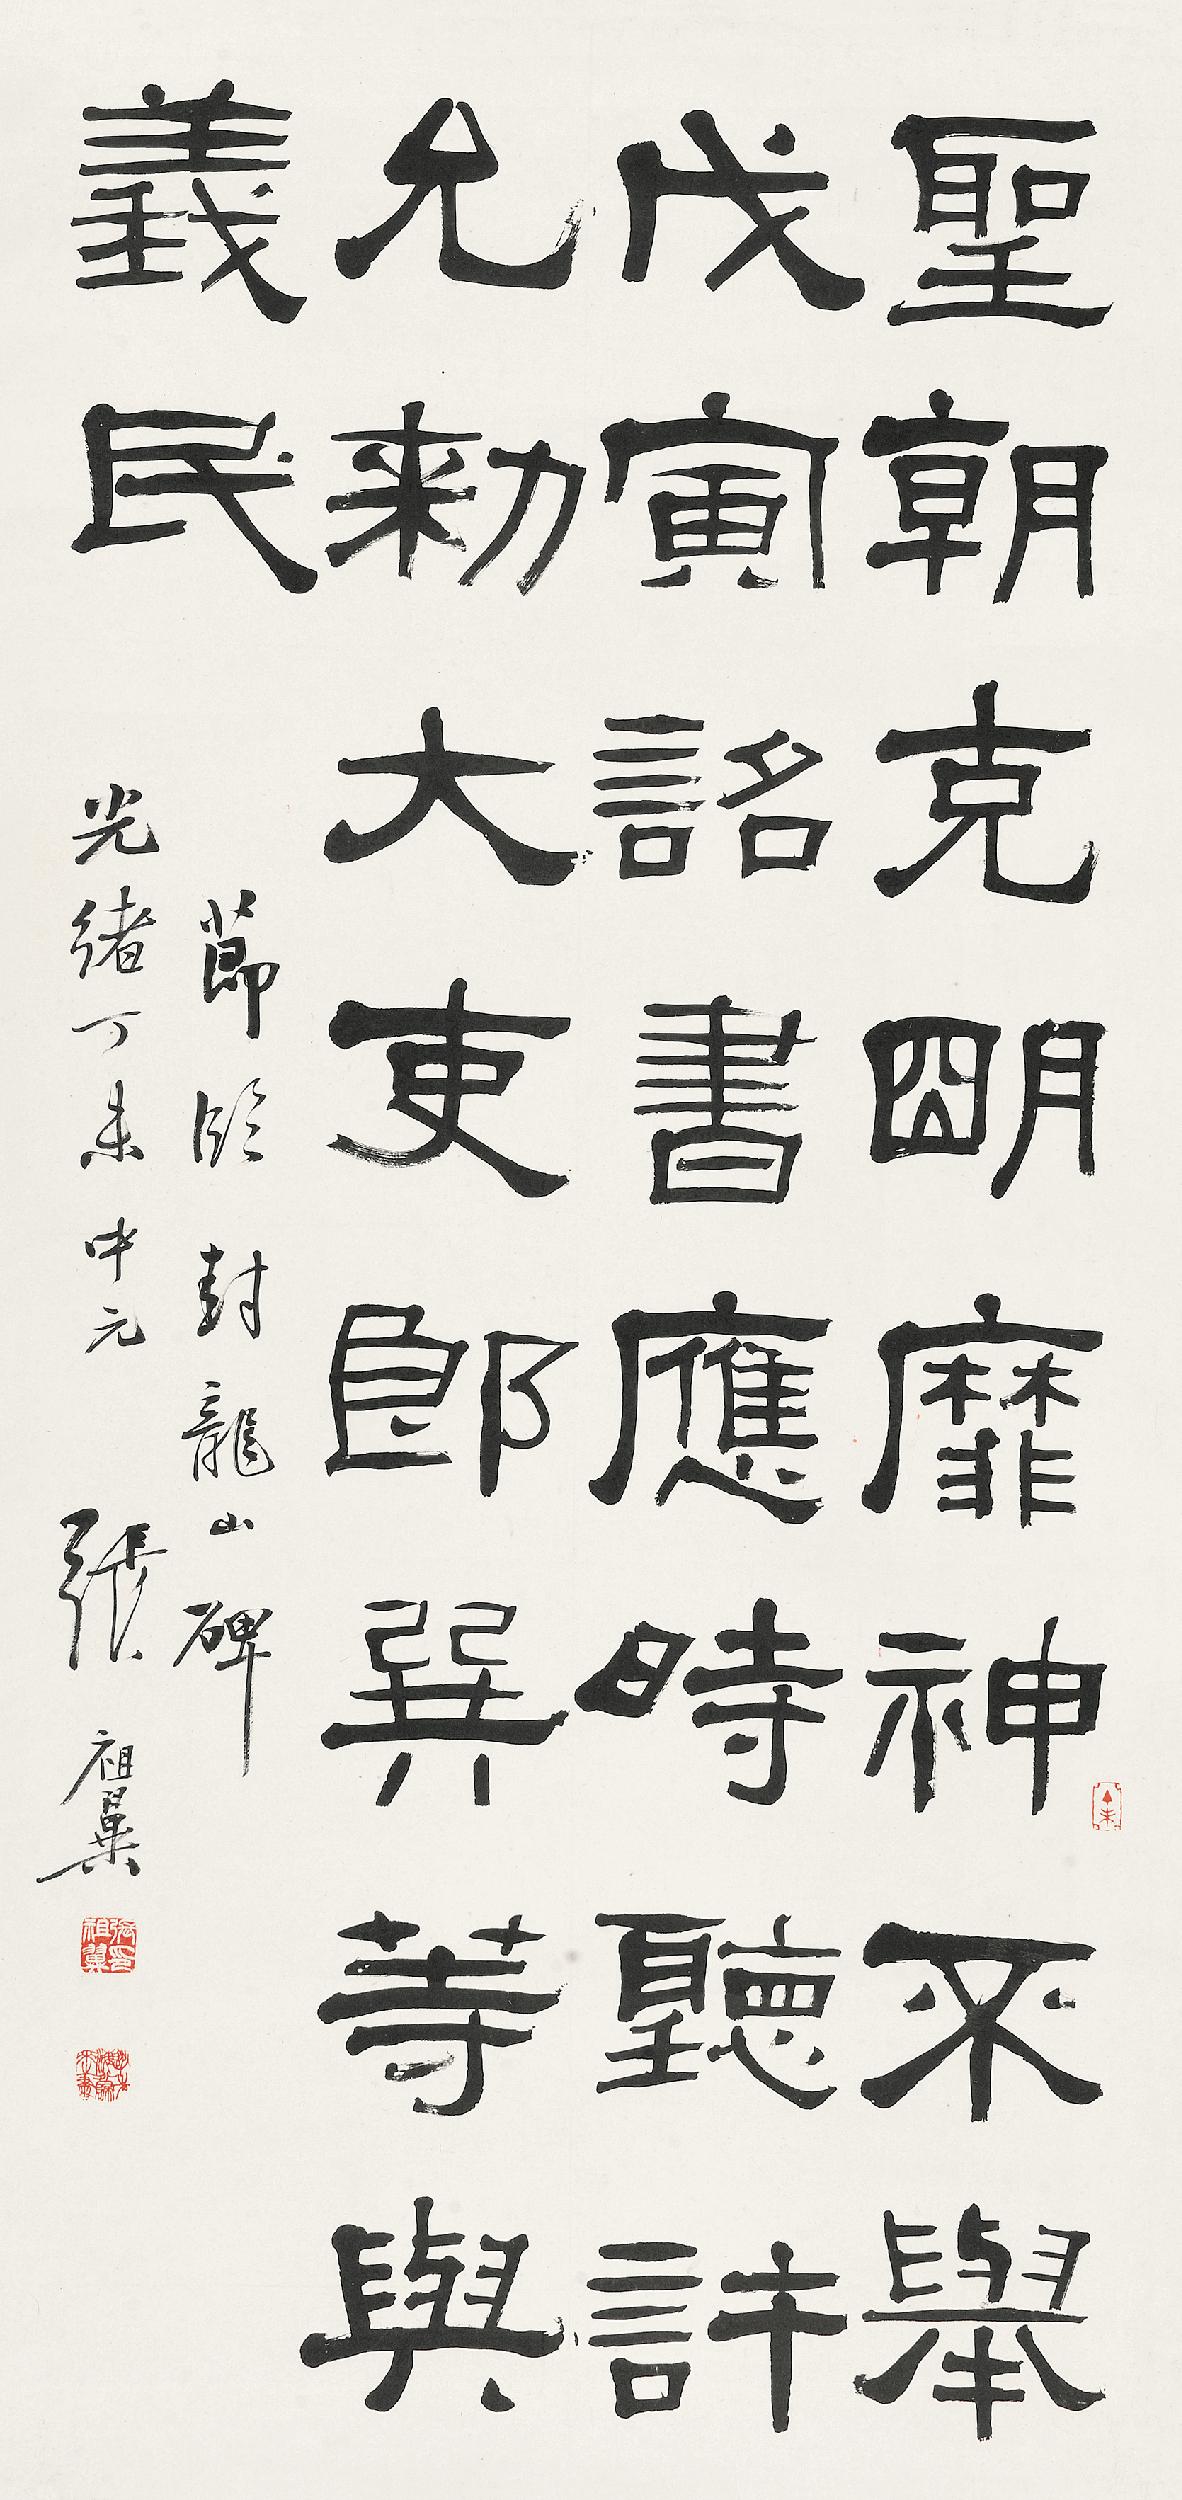 聖朝克明靡神不舉
戊寅詔書應時聽許
允勑大吏郎巽等與
義民
節臨封龍山碑
光緒丁未中元
張祖翼
張祖翼印